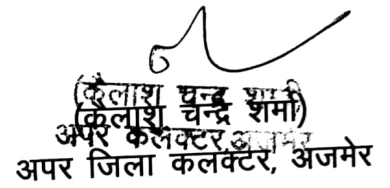 (कैलाश चन्द्र शर्मा)
(कैलाश चन्द्र शर्मा)
अपर कलक्टर, अजमेर
अपर जिला कलक्टर, अजमेर